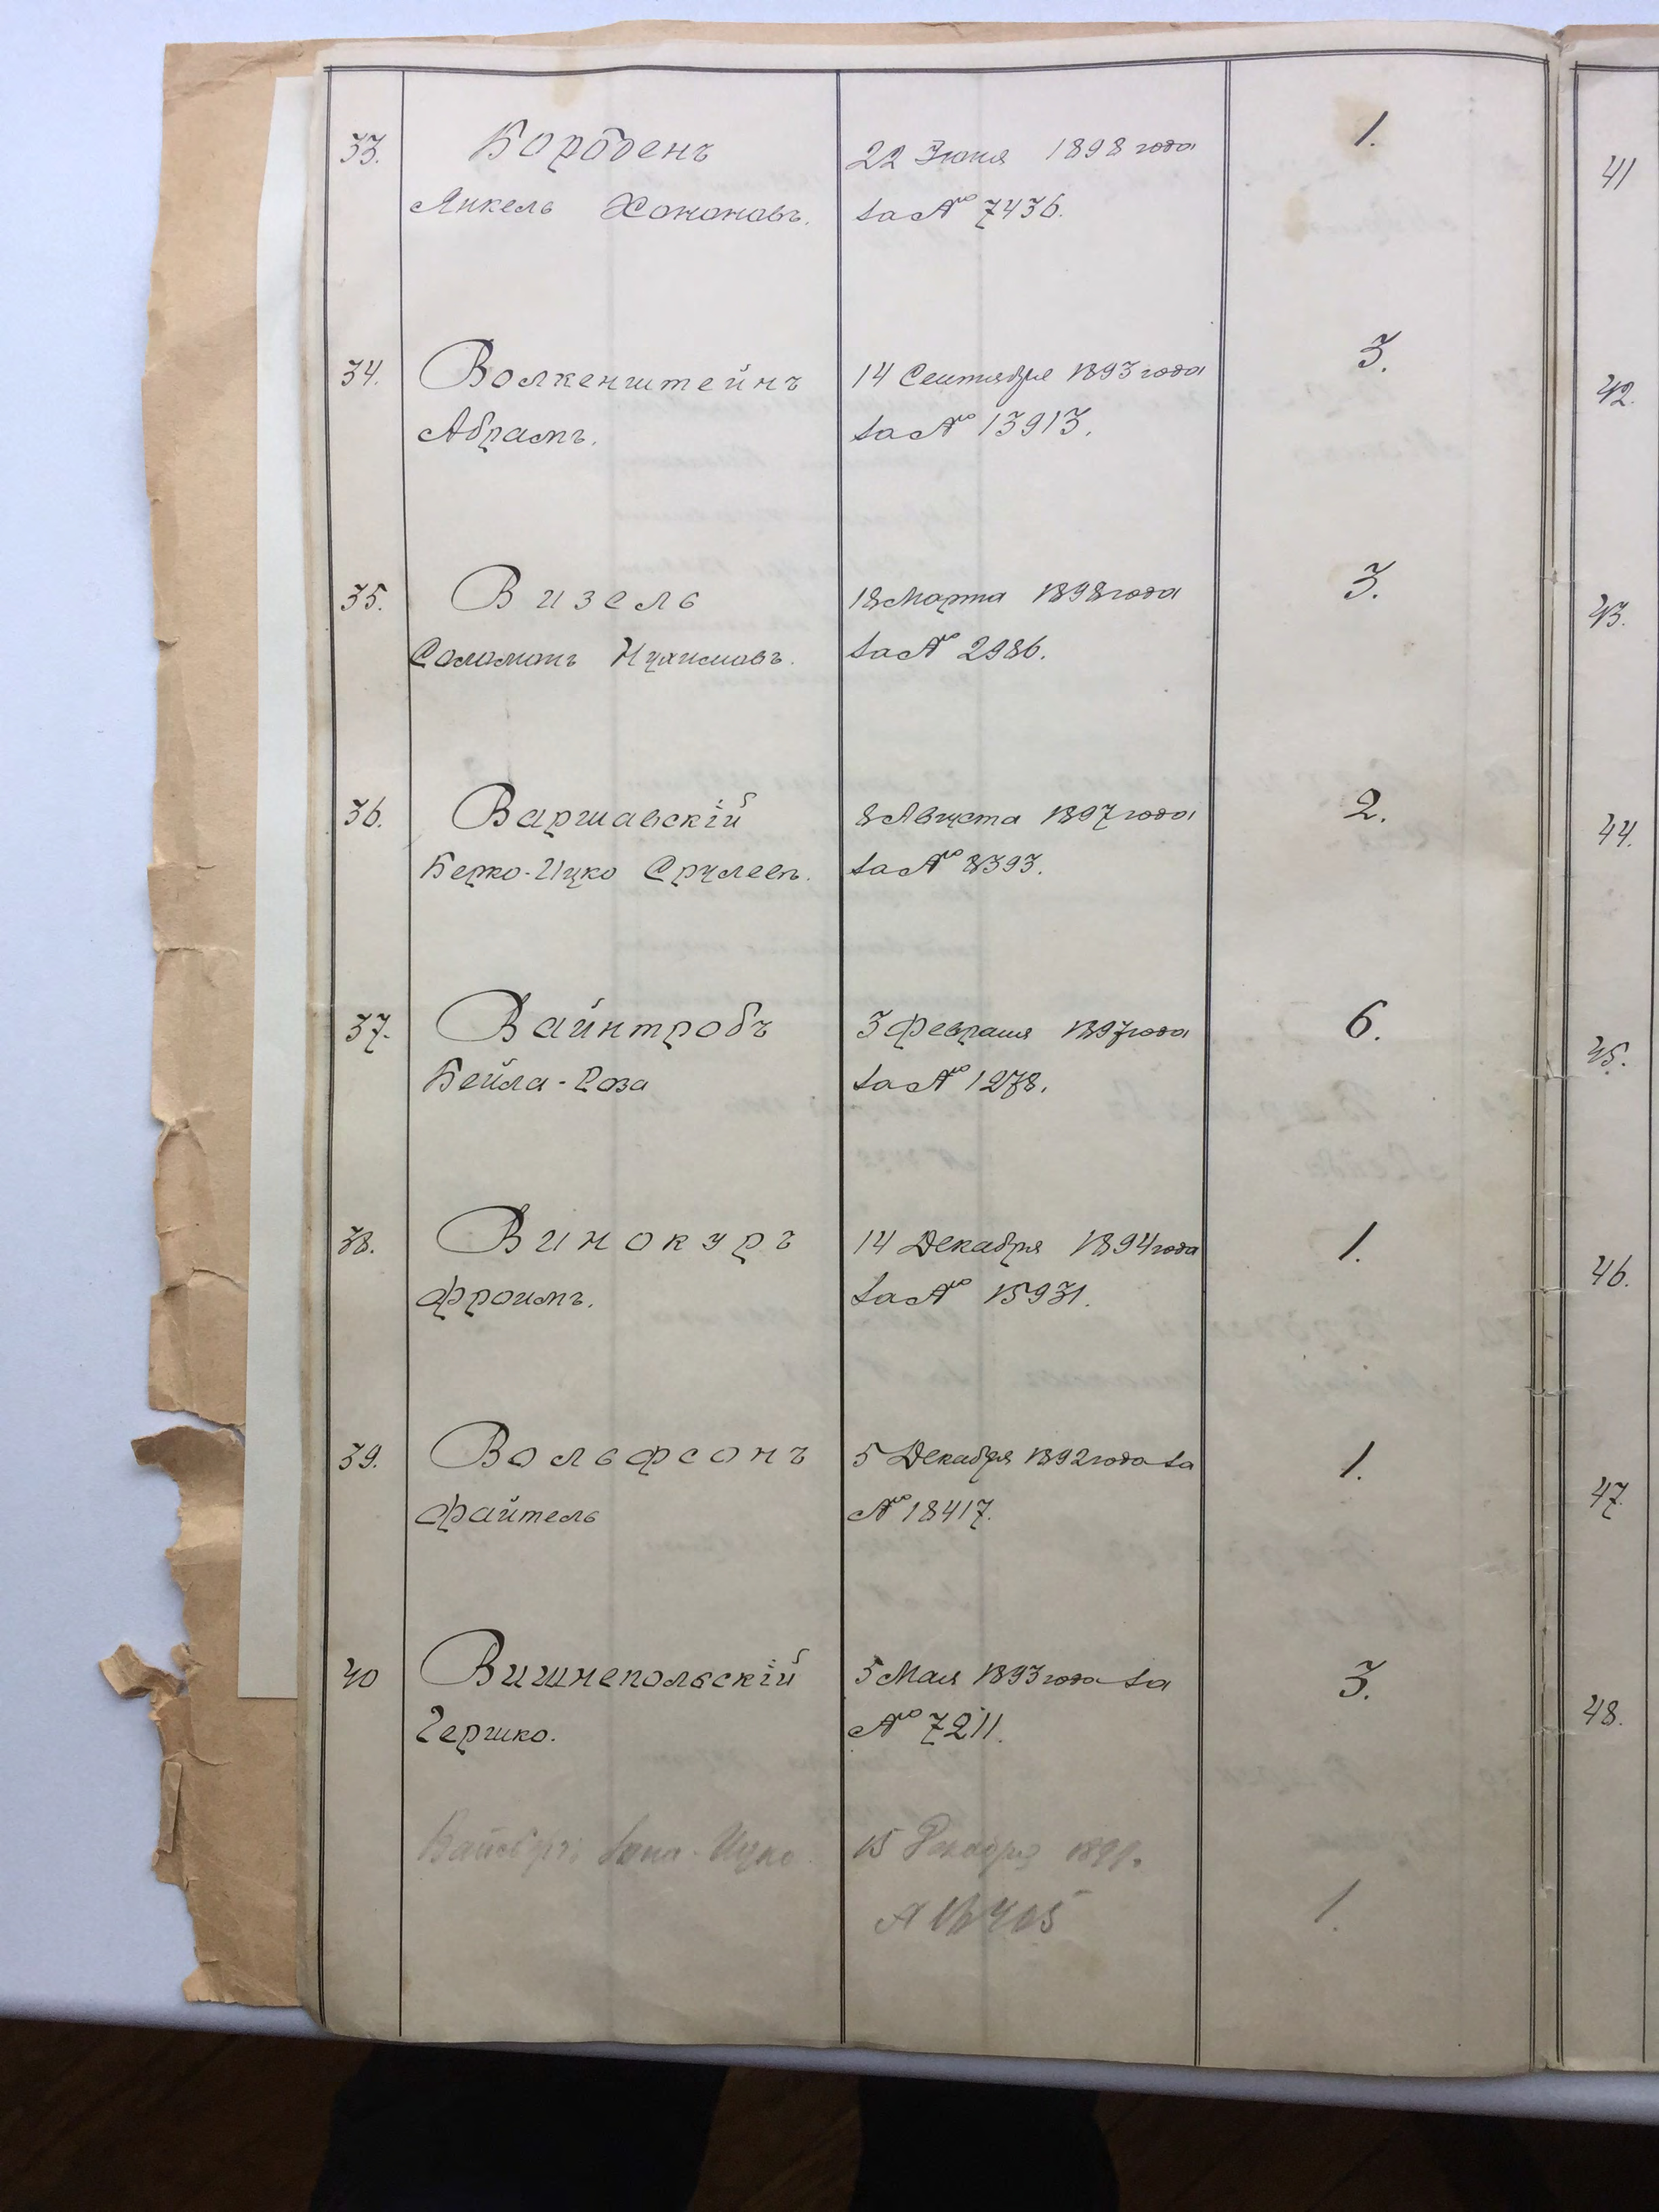 33. Бороденъ 22 Іюня 1898 года 1.
Янкель Хононовъ. за № 7436.
34. Волкенштейнъ 14 Сентября 1893 года 3.
Абрамъ. за № 13913.
35. Визель 18 Марта 1898 года 3.
Соломонъ Нухимовъ. за № 2986.
36. Варшавскій 8 Августа 1897 года 2.
Берко-Ицко Срулевъ. за № 8393.
37. Вайнтробъ 3 Февраля 1897 года 6.
Бейла-Роза за № 1278.
38. Винокуръ 14 Декабря 1894 года 1.
Фроимъ. за № 15931.
39. Вольфсонъ 5 Декабря 1892 года за 1.
Файтель № 18417.
40 Вишнепольскій 5 Мая 1893 года за 3.
Гершко. № 7211.
Ицко 15 Декабря
1.
41
42.
43.
44.
45.
46.
47.
48.